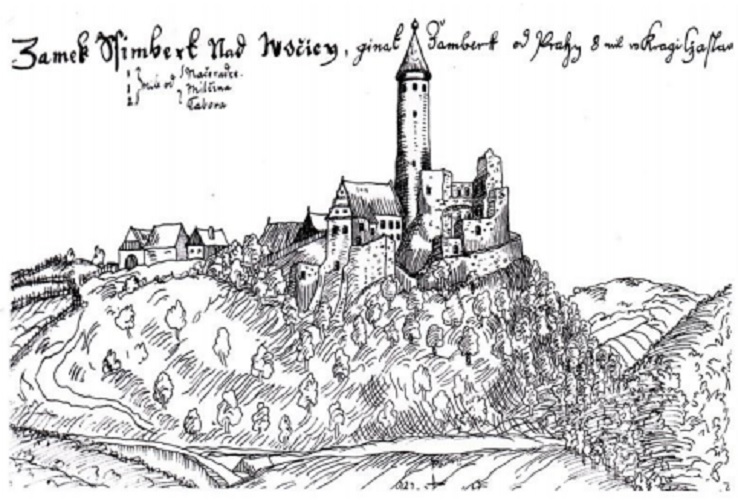 Zamek Ssimberk Nad Woźicy, ginak Ssamberk od Prahy 8 mil w Kragi Czaslaw
1
1 mile od Načeradce.
2 Milčina
Tabora